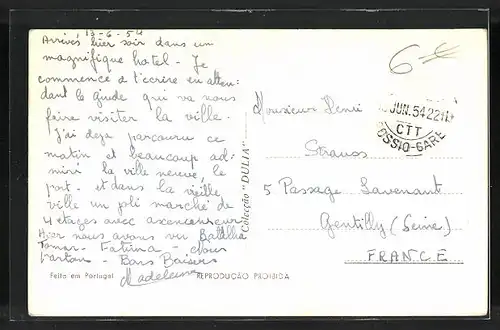 13-6-54
Arrivés hier soir dans un
magnifique hotel. Je
commence à t'écrire en atten-
dant le guide qui va nous
faire visiter la ville.
J'ai deja parcouru ce
matin et beaucoup ad-
miré la ville neuve, le
port. et dans la vieille
ville un joli marché de
4 étages avec ascenseur
Hier nous avons vu Batalha
Tomar - Fatima - Nous
partons - Bons Baisers
Madeleine
Feito em Portugal
REPRODUÇÃO PROIBIDA
Colecção "DULIA"
6
JUN. 54 22
CTT
ROSSIO-GARE
Monsieur Henri
Strauss
5 Passage Lavenant
Gentilly (Seine)
FRANCE